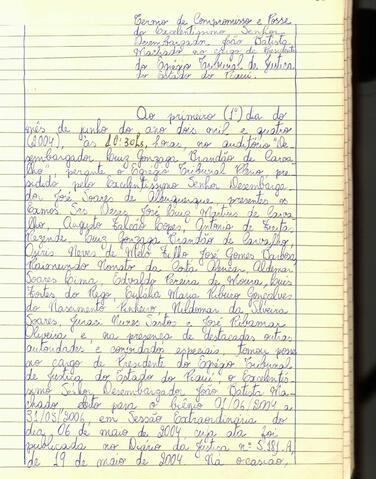 Termo de Compromisso e Posse
do Excelentíssimo Senhor
Desembargador João Batista
Machado no cargo de Presidente
do Egrégio Tribunal de Justiça
do Estado do Piauí.
Ao primeiro (1º) dia do
mês de junho do ano dois mil e quatro
(2004), às 10:30hs, horas, no auditório "De-
sembargador Luiz Gonzaga Brandão de Carva-
lho", perante o Egrégio Tribunal Pleno, pre-
sidido pelo Excelentíssimo Senhor Desembarga-
dor José Soares de Albuquerque, presentes os
Exmos. Srs. Deses. José Luiz Martins de Carva-
lho, Augusto Falcão Lopes, Antônio de Freitas
Rezende, Luiz Gonzaga Brandão de Carvalho,
Osiris Neves de Melo Filho, José Gomes Barbosa,
Raimundo Nonato da Costa Alencar, Aldemar
Soares Lima, Edvaldo Pereira de Moura, Luis
Fortes do Rêgo, Eulália Maria Ribeiro Gonçalves
do Nascimento Pinheiro, Nildomar da Silveira
Soares, Nunes Santos e José Ribamar
Oliveira e, na presença de destacadas outras
autoridades e convidados especiais, tomou posse
no cargo de Presidente do Egrégio Tribunal
de Justiça do Estado do Piauí, o Excelentís-
simo Senhor Desembargador João Batista Ma-
chado, eleito para o biênio 01/06/2004 a
31/05/2006, em Sessão Extraordinária do
dia 06 de maio de 2004, cuja ata foi
publicada no Diário da Justiça nº 5.181-A,
de 19 de maio de 2004. Na ocasião,